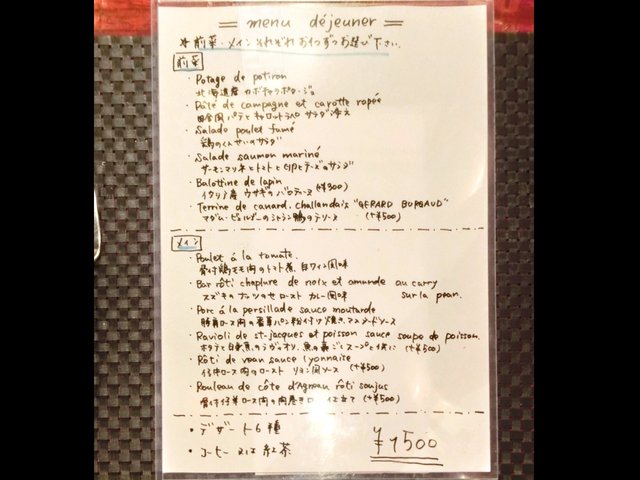 = menu déjeuner =
* 前菜・メインそれぞれお1つずつお選び下さい。
前菜
・Potage de potiron
北海道産 カボチャのポタージュ
・Pâté de campagne et carotte rapée
田舎風パテとキャロットラペ サラダ添え
・Salade poulet fumé
鶏のくんせいのサラダ
・Salade saumon mariné
サーモンマリネとトマトと卵とチーズのサラダ
・Ballottine de lapin
イタリア産 ウサギのバロティーヌ (+¥300)
・Terrine de canard, challandais "GERARD BURGAUD"
ビュルゴーのシャラン鴨のテリーヌ (+¥500)
メイン
・Poulet á la tomate.
骨付鶏モモ肉のトマト煮 白ワイン風味
・Bar rôti chaplure de noix et amande au curry
スズキのナッツのせロースト カレー風味 sur la peau.
・Porc á la persillade sauce moutarde
豚肩ロース肉の香草パン粉付け焼き マスタードソース
・Ravioli de st-jacques et poisson sauce soupe de poisson.
ホタテと白身魚のラヴィオリ、魚の スープと供に (+¥500)
・Rôti de veau sauce lyonnaise
仔牛ロース肉のロースト リヨン風ソース (+¥500)
・Rouleau de côte d'agneau rôti sonjus
骨付仔羊ロース肉の肉巻き 仕立て (+¥500)
・デザート6種
・コーヒー又は紅茶
¥1500